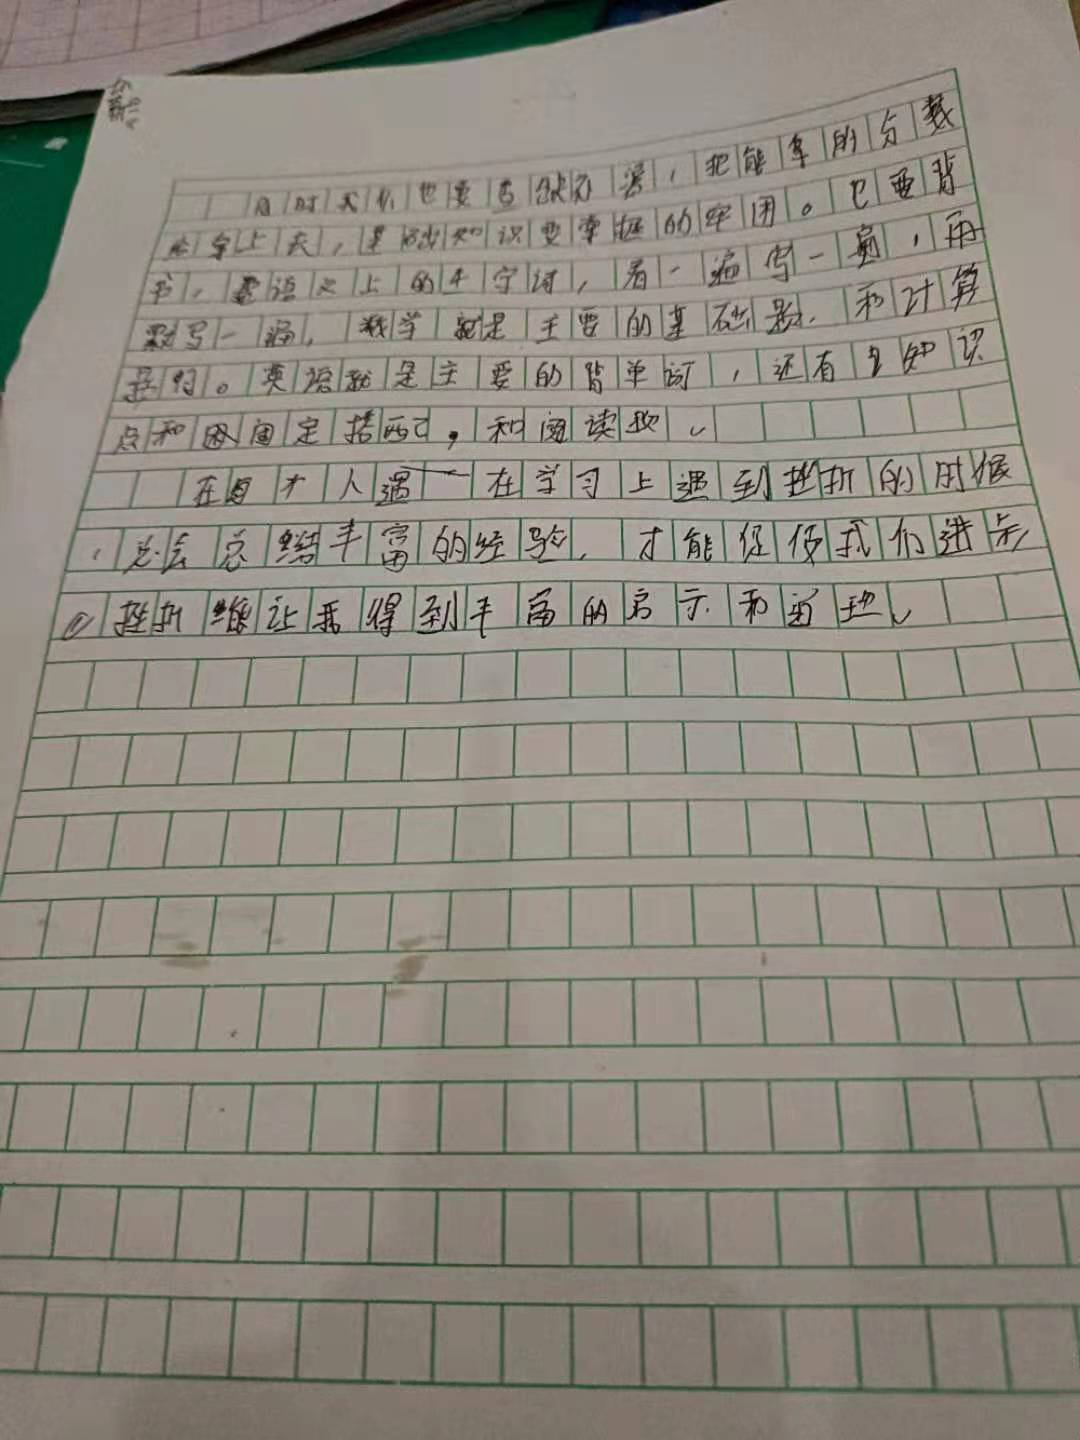 同时我们也要查缺补漏，把能拿的分数
拿上去，基础知识要掌握的牢固。
书，语文上的生字词，看一遍写一遍，再
默写一遍，数学就是主要的基础题，和计算
题的。英语就是主要的背单词，还有知识
点和固定搭配，和阅读
在人遇在学习上遇到挫折的时候
，总会总结丰富的经验，才能促使我们进步
。挫折能让我得到丰富的启示和道理。